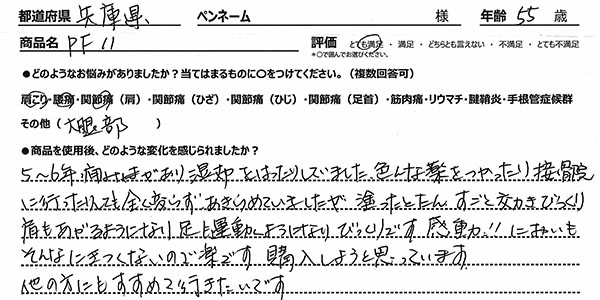 都道府県 兵庫県 ペンネーム 様 年齢 55 歳
商品名 PF11 評価 とても満足 ・ 満足 ・ どちらとも言えない ・ 不満足 ・ とても不満足
*○で囲んでお選びください。
●どのようなお悩みがありましたか?当てはまるものに○をつけてください。(複数回答可)
肩こり・腰痛・関節痛(肩)・関節痛(ひざ)・関節痛(ひじ)・関節痛(足首)・筋肉痛・リウマチ・腱鞘炎・手根管症候群
その他( 大腿部 )
●商品を使用後、どのような変化を感じられましたか?
5〜6年、痛みがあり湿布をはったりしていました。色んな薬をつかったり接骨院
に行ったりしても全く変らずあきらめていましたが塗ったとたん、すごく効きびっくり
肩もあがるようになり足も運動するようになりびっくりです 感動!! においも
そんなにきつくないので楽です 購入しようと思っています
他の方にもすすめて行きたいです